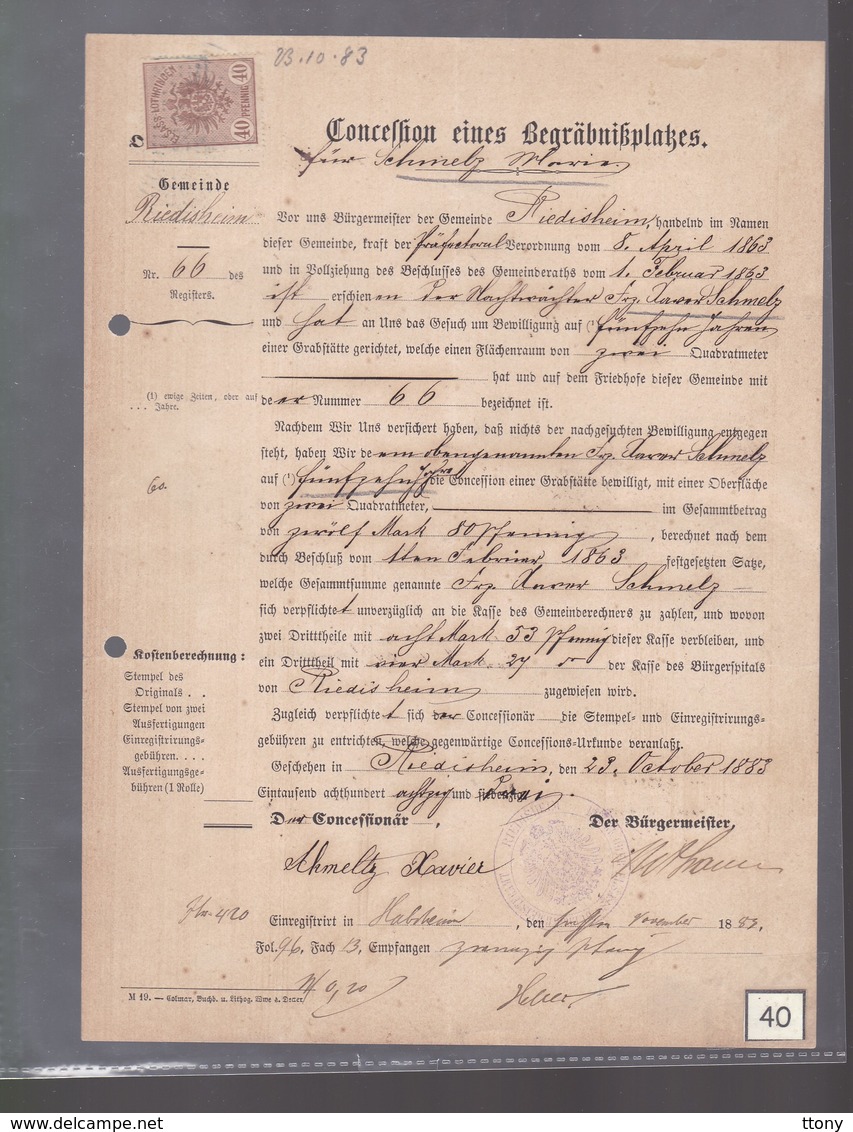 23.10.83
ELSASS-LOTHRINGEN
40 PFENNIG 40
Concession eines Begräbnißplatzes.
für Schmelz Marie
Gemeinde
Riedisheim
Nr. 66 des
Registers.
Vor uns Bürgermeister der Gemeinde Riedisheim, handelnd im Namen
dieser Gemeinde, kraft der Präfectoral Verordnung vom 8. April 1863
und in Vollziehung des Beschlusses des Gemeinderaths vom 1. Februar 1863
ist erschienen der Nachtwächter Frz. Xaver Schmelz
und hat an Uns das Gesuch um Bewilligung auf (¹ fünfzehn Jahren
einer Grabstätte gerichtet, welche einen Flächenraum von zwei Quadratmeter
hat und auf dem Friedhofe dieser Gemeinde mit
(1) ewige Zeiten, oder auf
. . . Jahre.
der Nummer 66 bezeichnet ist.
Nachdem Wir Uns versichert haben, daß nichts der nachgesuchten Bewilligung entgegen
steht, haben Wir dem obengenannten Frz. Xaver Schmelz
auf (¹) fünfzehn Jahre die Concession einer Grabstätte bewilligt, mit einer Oberfläche
60
von zwei Quadratmeter, im Gesammtbetrag
von zwölf Mark 80 Pfennig, berechnet nach dem
durch Beschluß vom 1ten Februar 1863 festgesetzten Satze,
welche Gesammtsumme genannte Frz. Xaver Schmelz
sich verpflichtet unverzüglich an die Kasse des Gemeinderechners zu zahlen, und wovon
zwei Dritttheile mit acht Mark 53 Pfennig dieser Kasse verbleiben, und
ein Dritttheil mit vier Mark 27 der Kasse des Bürgerspitals
von Riedisheim zugewiesen wird.
Zugleich verpflichtet sich der Concessionär die Stempel- und Einregistrirungs-
gebühren zu entrichten, welche gegenwärtige Concessions-Urkunde veranlaßt.
Geschehen in Riedisheim, den 23. October 1883
Eintausend achthundert achtzig und drei.
Kostenberechnung:
Stempel des
Originals . .
Stempel von zwei
Ausfertigungen
Einregistrirungs-
gebühren. . . .
Ausfertigungsge-
bühren (1 Rolle)
Der Concessionär, Der Bürgermeister,
Schmeltz Xavier
420
Einregistrirt in Habsheim, den November 1883.
Fol. 96 Fach 13, Empfangen zwanzig Pfennig
M 0,20
M 19. — Colmar, Buchd. u. Lithog. Wwe d. Decker
40
ttony